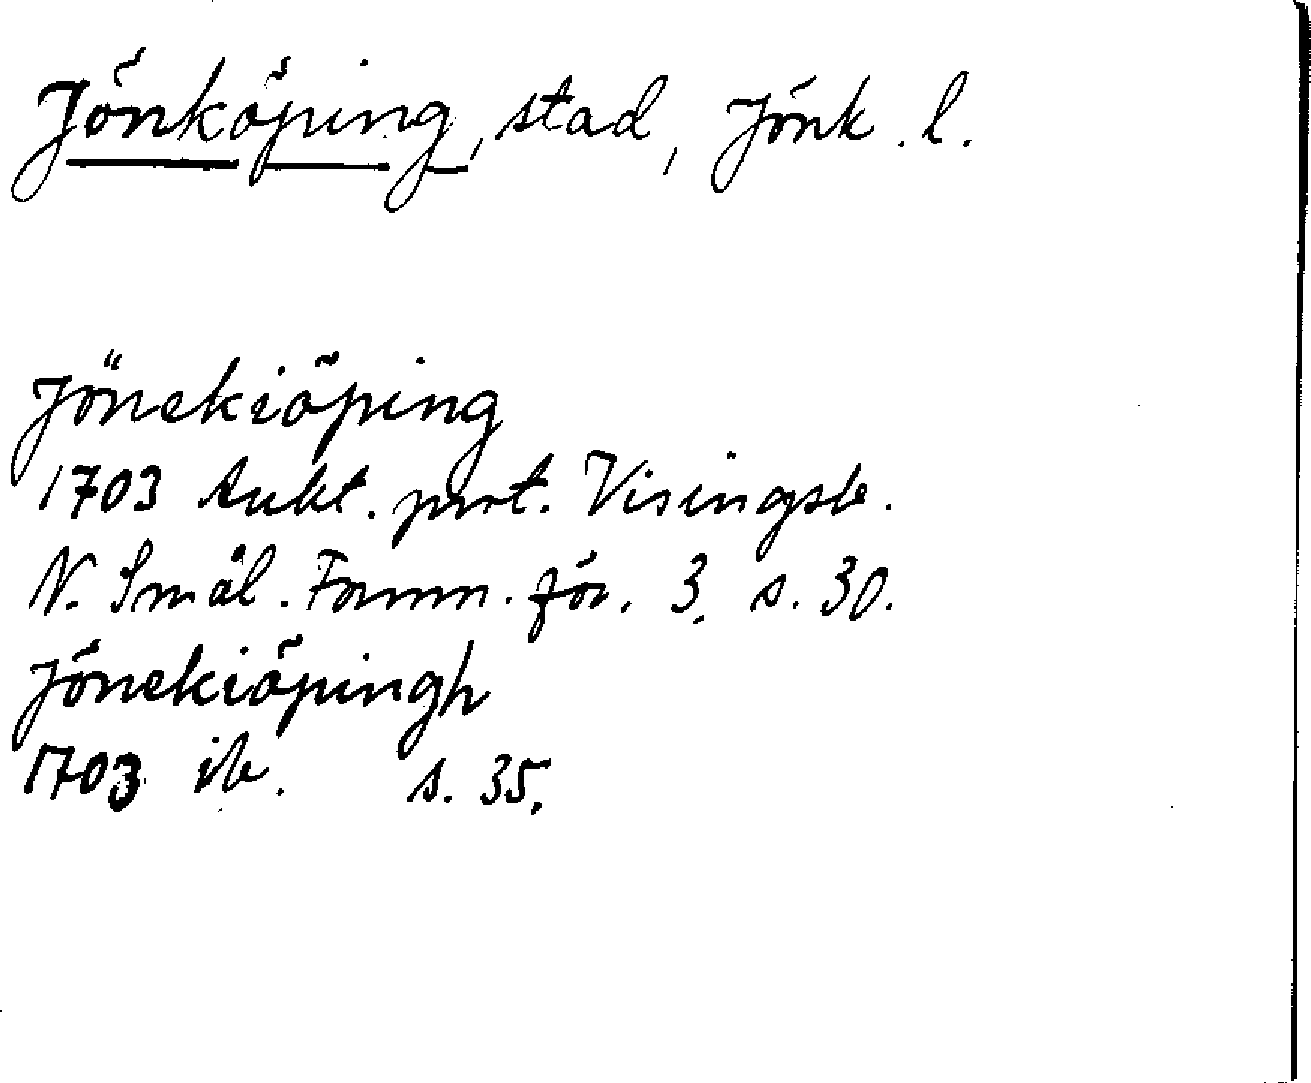 Jönköping, stad, Jönk. l.
Jönekiöping
1703 Aukt. prot. Visingsb.
N. Smål. Fornm. för. 3. s. 30.
Jönekiöpingh
1703 ib. s. 35.